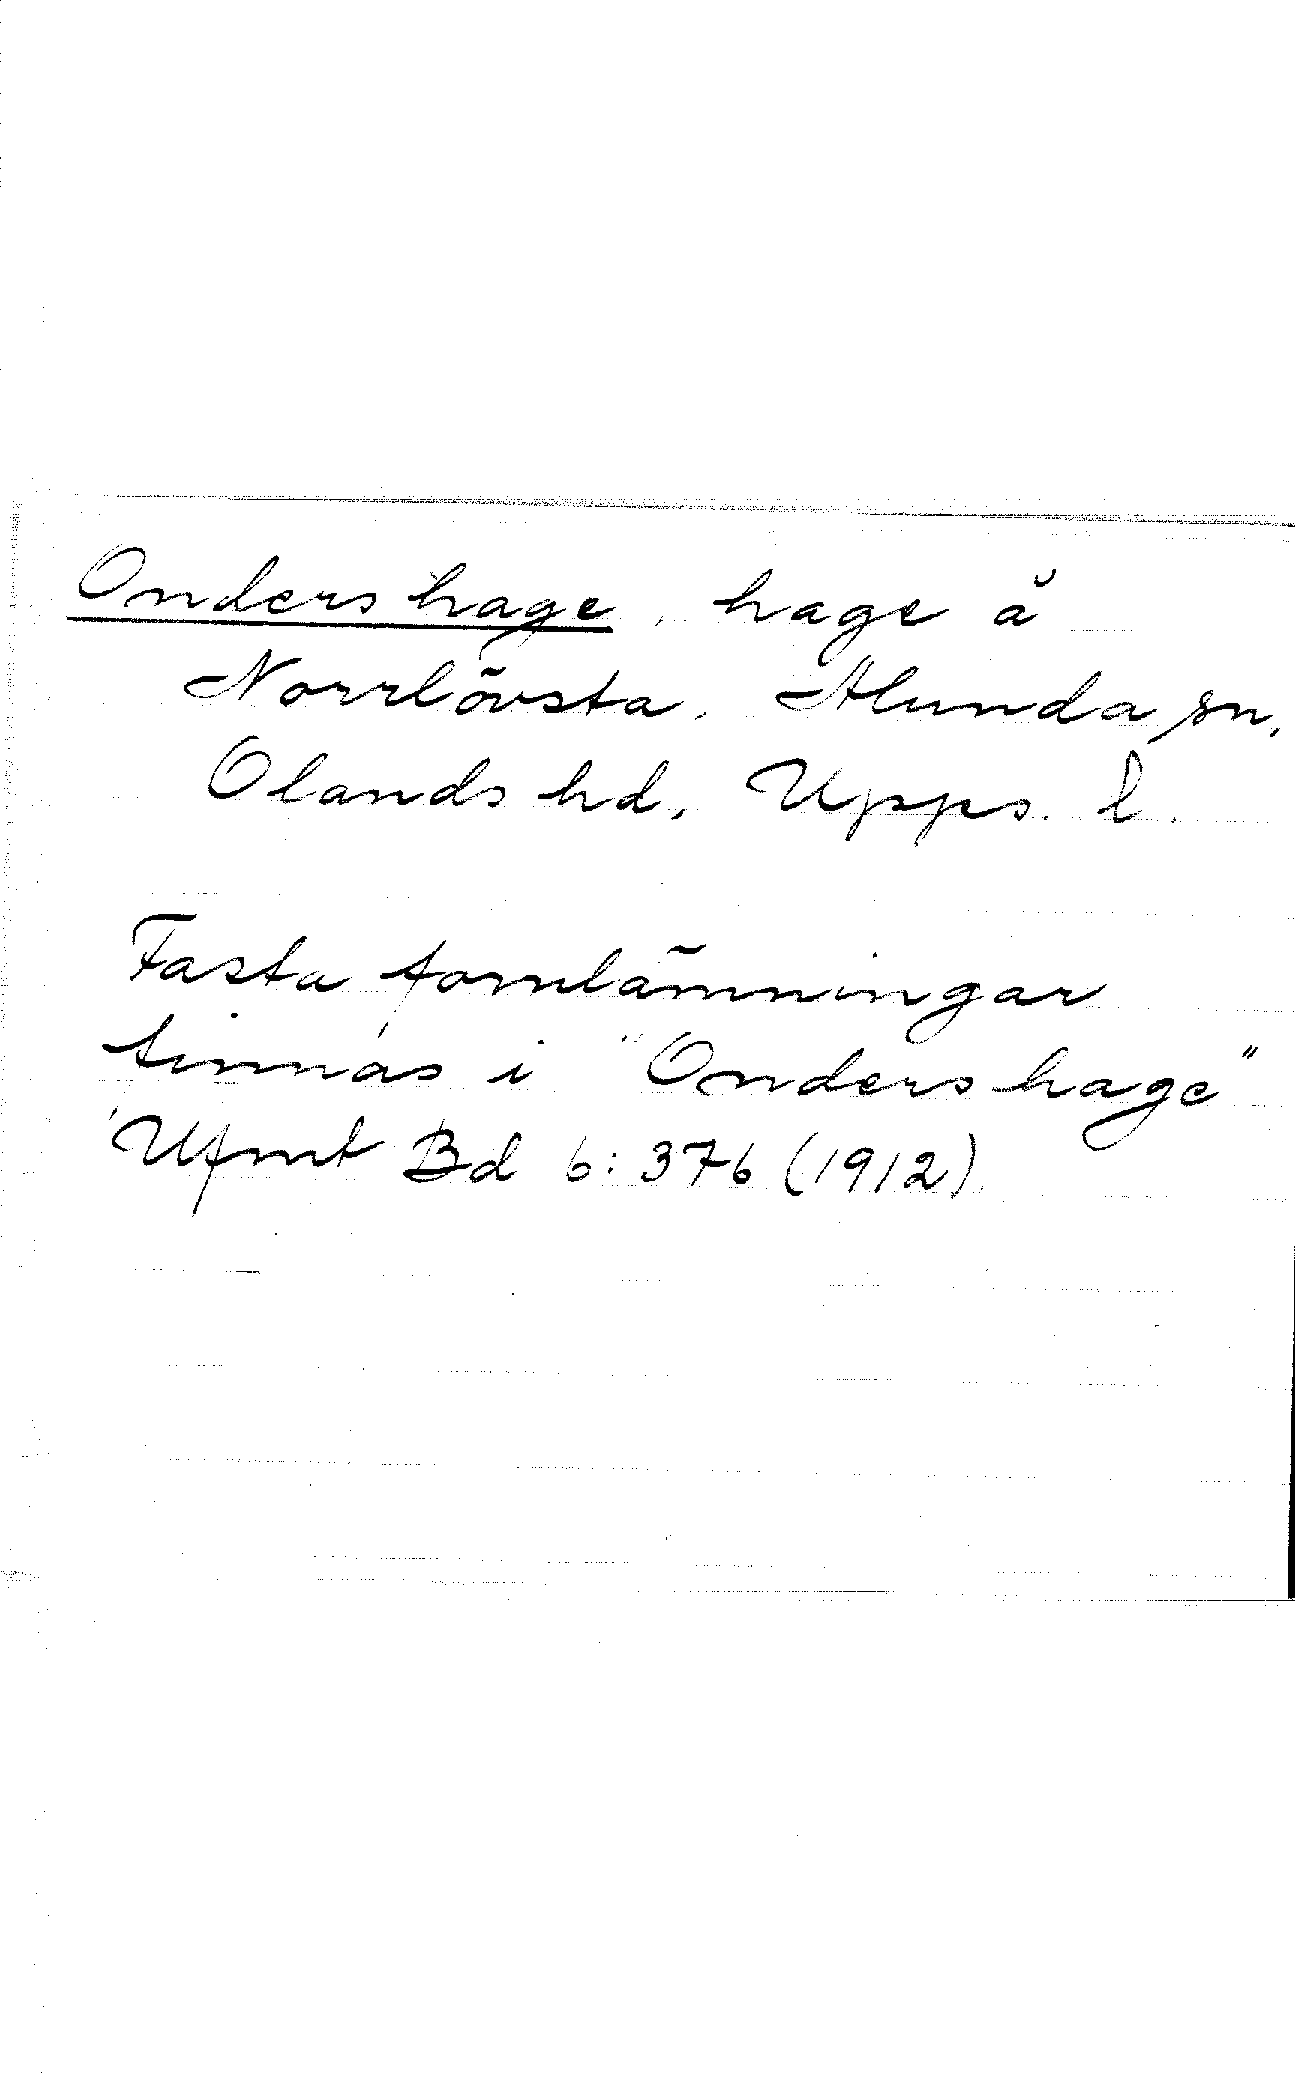 Ondershage, hage å
Norrlövsta, Alunda sn,
Olands hd, Upps. l.
Fasta fornlämningar
finnas i "Ondershage"
Ufmt Bd 6:376 (1912)